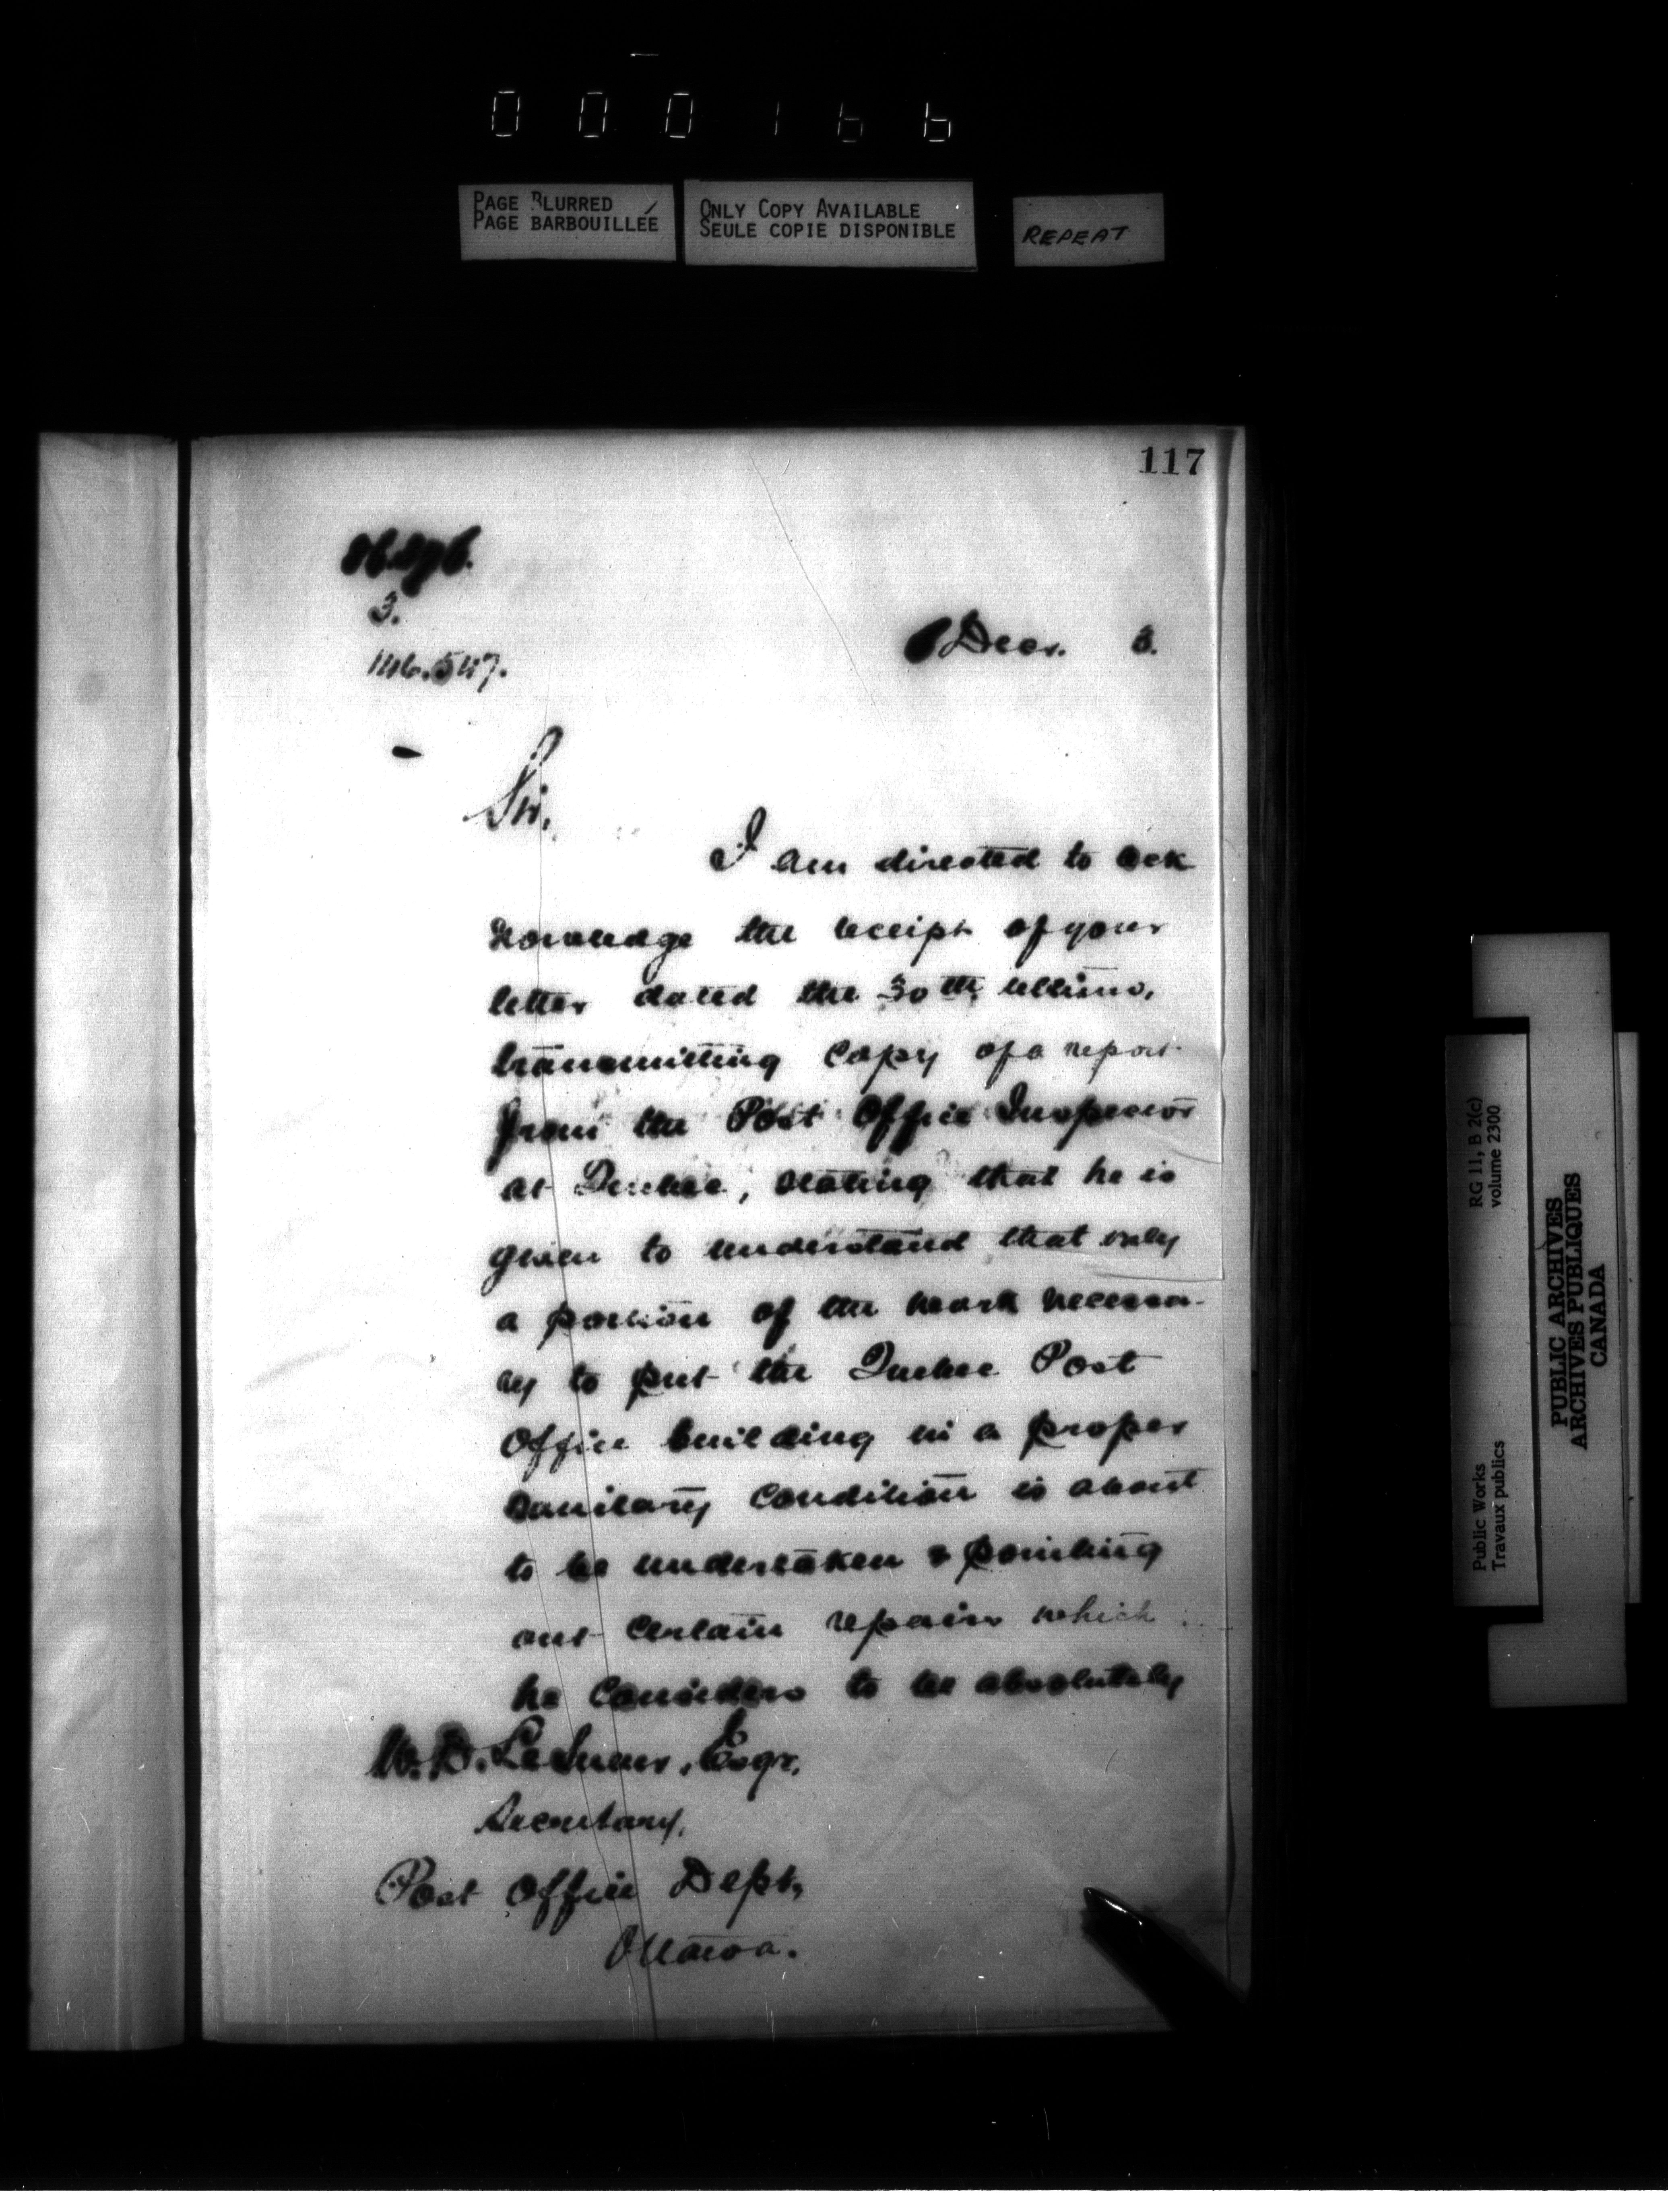 000166
PAGE BLURRED
PAGE BARBOUILLÉE
ONLY COPY AVAILABLE
SEULE COPIE DISPONIBLE
REPEAT
117
3.
146.547.
Decr. 3.
Sir,
I am directed to ack
nowledge the receipt of your
letter dated the 30th ultimo,
transmitting copy of a report
from the Post Office Inspector
at Quebec, stating that he is
given to understand that only
a portion of the work necessa-
ry to put the Quebec Post
Office building in a proper
sanitary condition is about
to be undertaken & pointing
out certain repairs which
he considers to be absolutely
W. D. LeSueur, Esqr,
Secretary,
Post Office Dept,
Ottawa.
Public Works
Travaux publics
RG 11, B 2(c)
volume 2300
PUBLIC ARCHIVES
ARCHIVES PUBLIQUES
CANADA